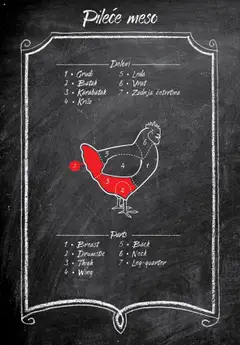 Pileće meso
Delovi
1 • Grudi
2 • Batak
3 • Karabatak
4 • Krilo
5 • Leđa
6 • Vrat
7 • Zadnja četvrtina
6
5
1
4
3
7
2
Parts
1 • Breast
2 • Drumstic
3 • Thigh
4 • Wing
5 • Back
6 • Neck
7 • Leg-quarter